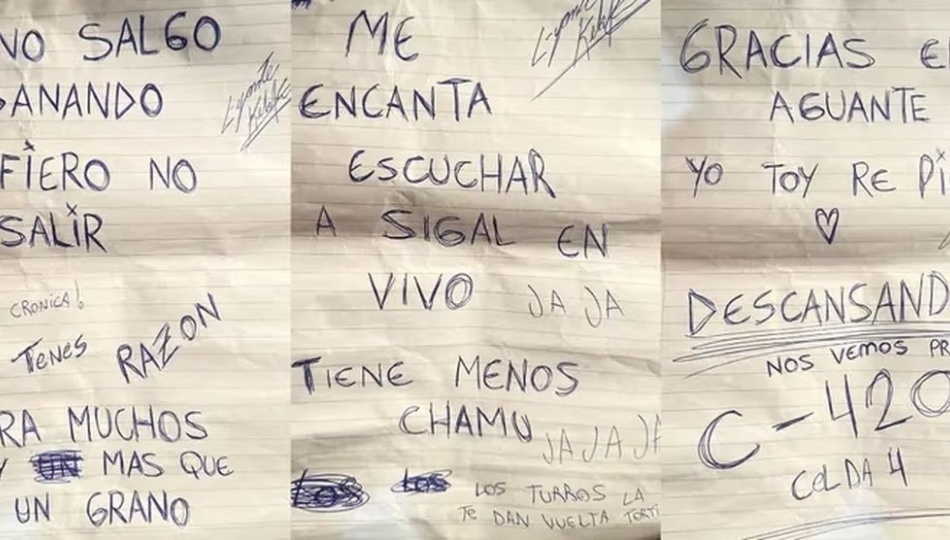 NO SALGO
GANANDO
FIERO NO
SALIR
CRONICA!
TENES
RAZON
RA MUCHOS
Y UN MAS QUE
UN GRANO
ME
ENCANTA
ESCUCHAR
A SIGAL EN
VIVO JA JA
TIENE MENOS
CHAMU JA JA JA
LOS LOS LOS TURROS LA
TE DAN VUELTA TORTI
GRACIAS E
AGUANTE
YO TOY RE PI
DESCANSAND
NOS VEMOS PR
C-420
CELDA 4